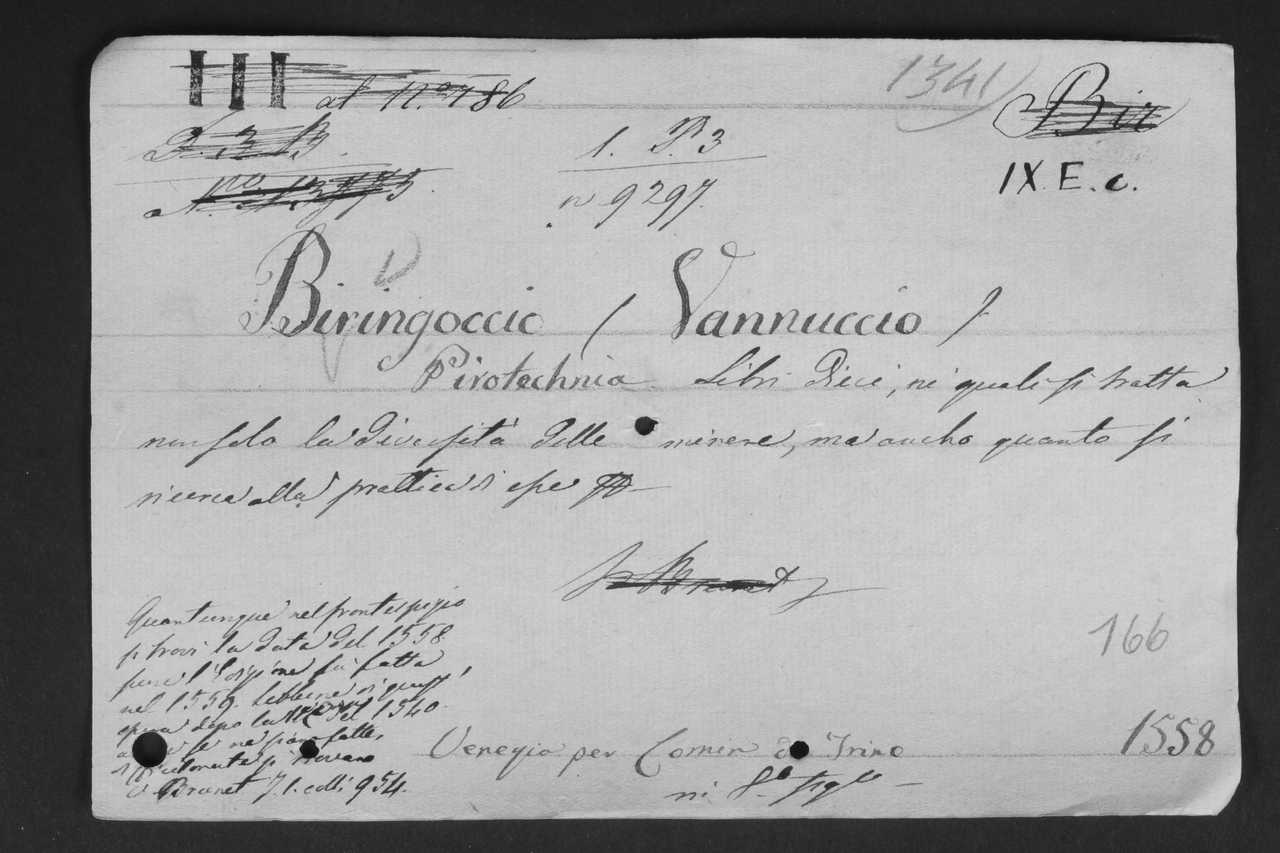 III al n.º 786
1341
Bir
1. P. 3
IX. E. c.
n 9297.
Biringoccio (Vannuccio)
Pirotechnia Libri Dieci, ne quali si tratta
non solo la diversità delle minere, ma ancho quanto si
ricerca alla prattica di esse
Brunet
Quantunque nel frontespizio
si trovi la data del 1558
pure l'edizione fu fatta
nel 1559. Sebbene di quest'
opera dopo la del 1540.
V. Brunet T. 1. coll. 954.
166
1558
Venezia per Comin da Trino
in 8.º fig.to